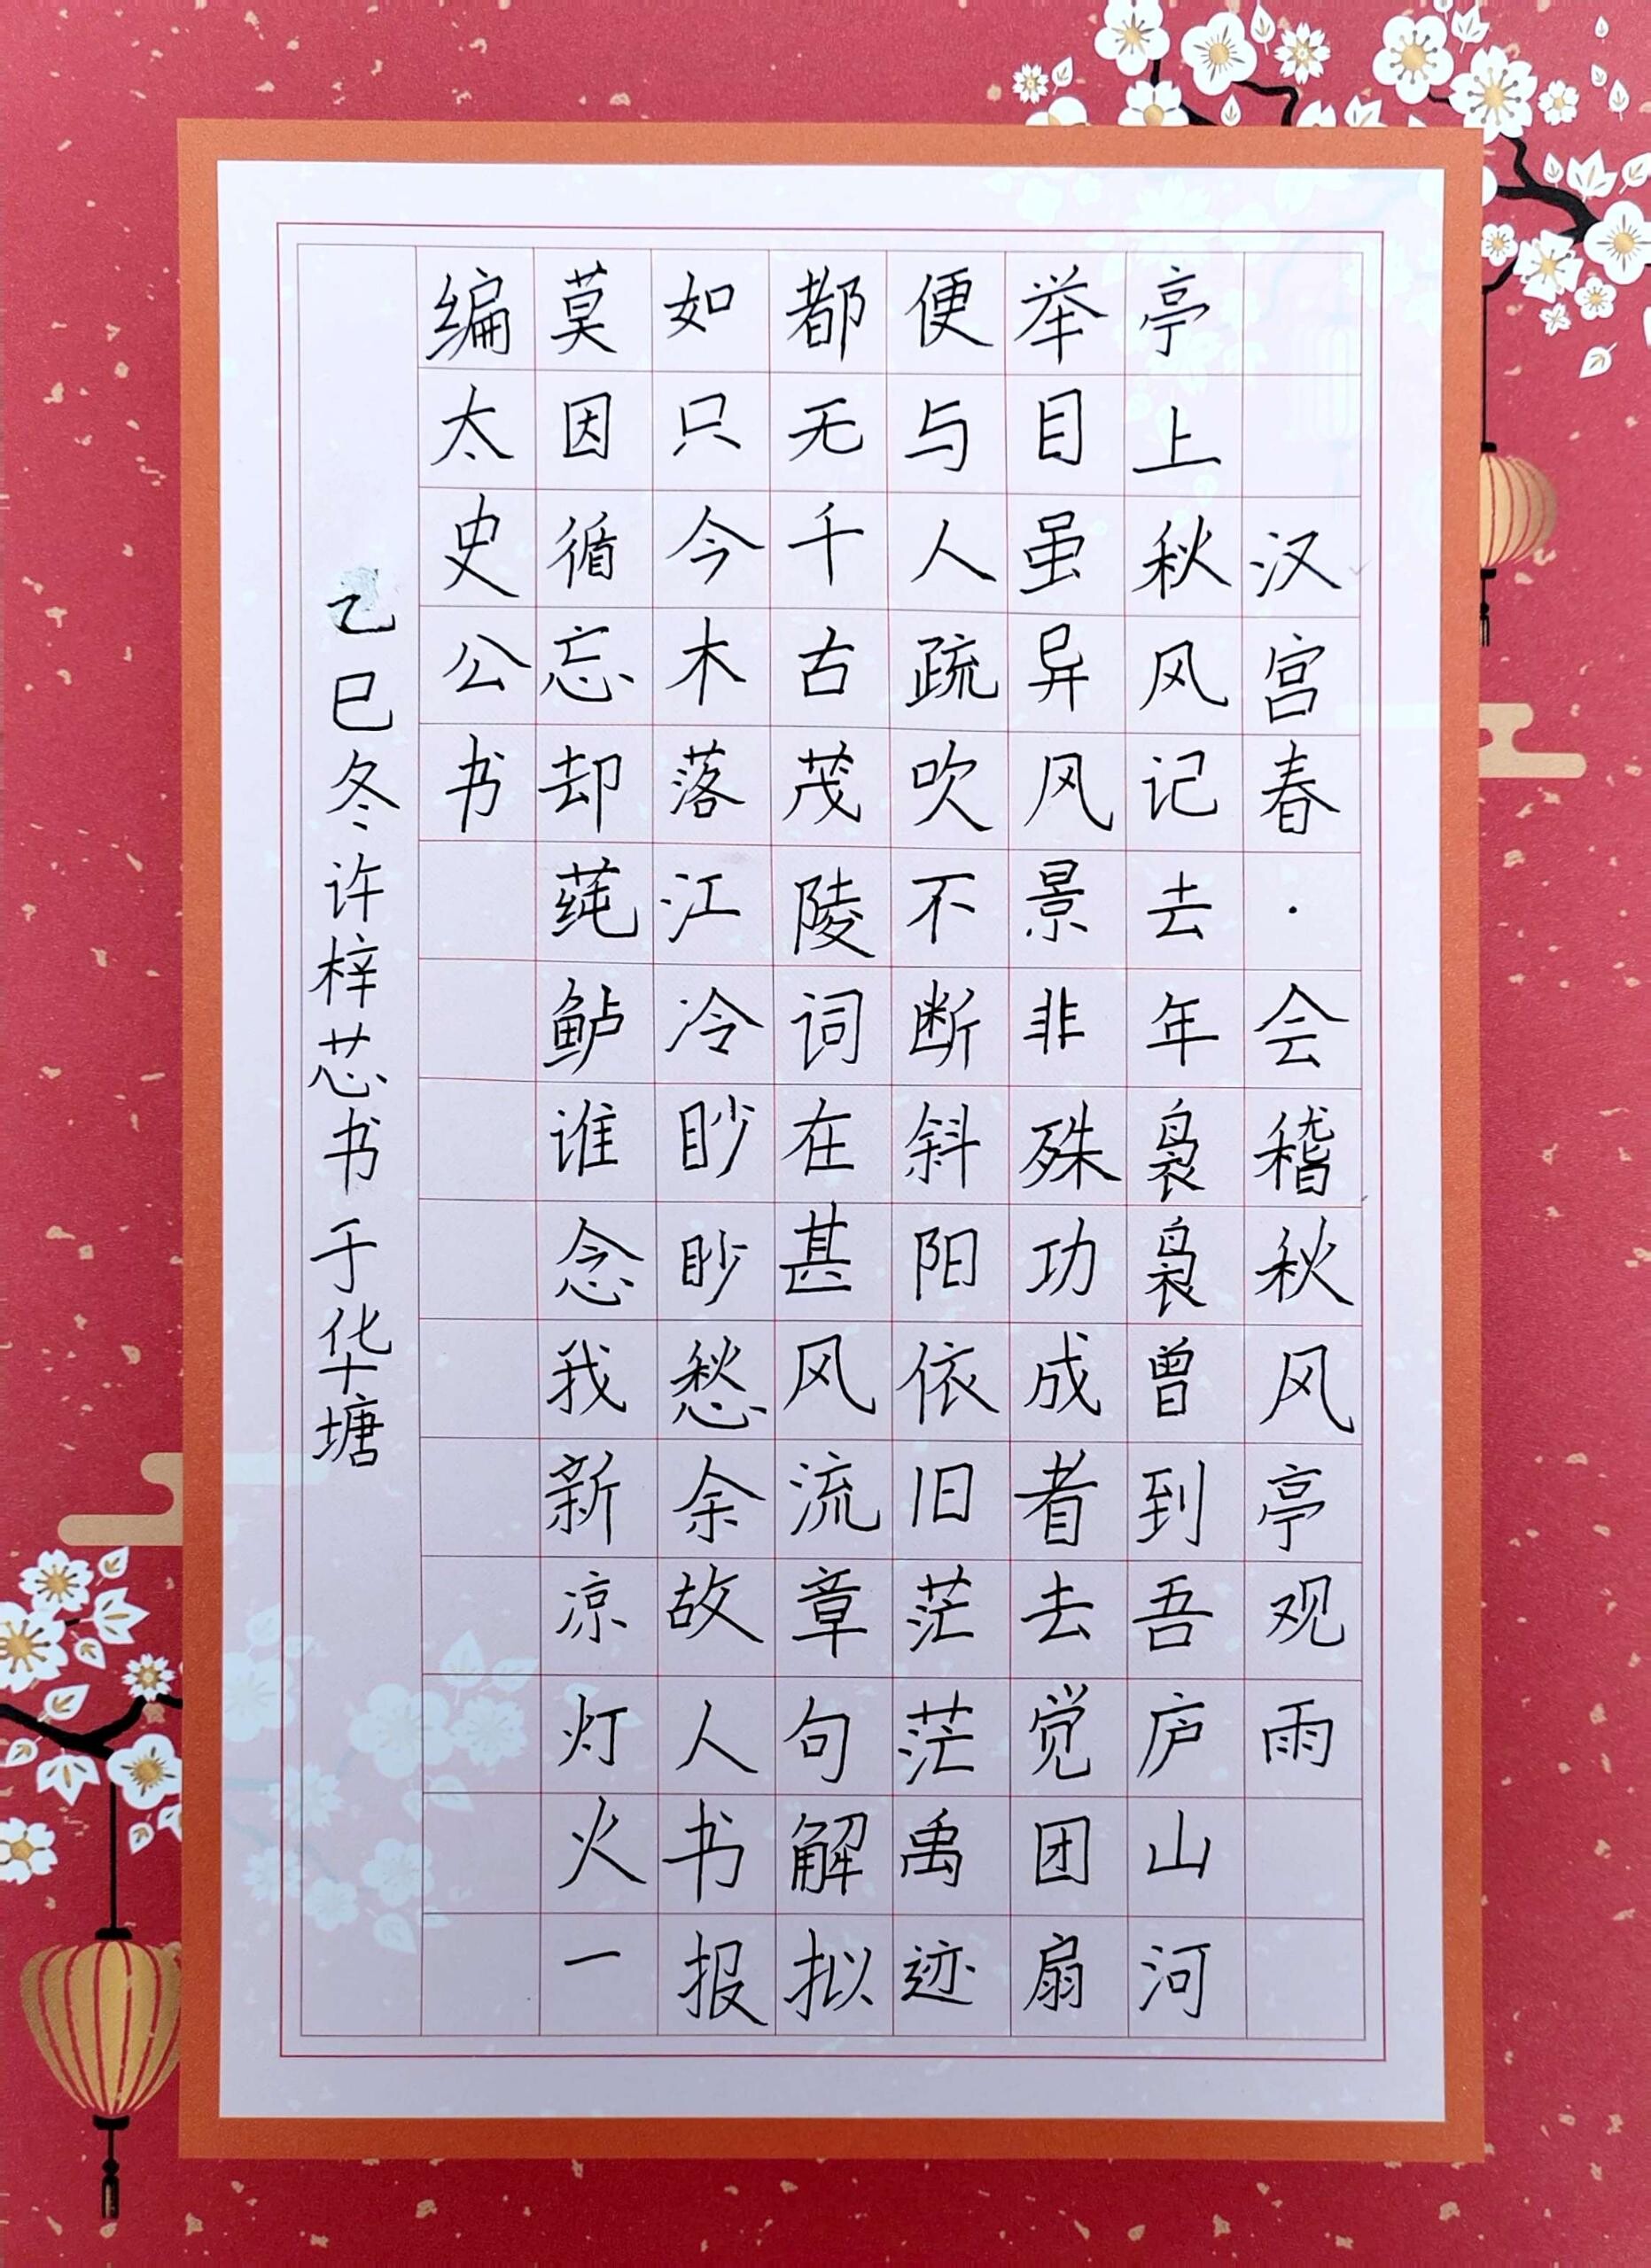 汉宫春·会稽秋风亭观雨
亭上秋风记去年袅袅曾到吾庐山河
举目虽异风景非殊功成者去觉团扇
便与人疏吹不断斜阳依旧茫茫禹迹
都无千古茂陵词在甚风流章句解拟
如只今木落江冷眇眇愁余故人书报
莫因循忘却莼鲈谁念我新凉灯火一
编太史公书
乙巳冬许梓芯书于华塘